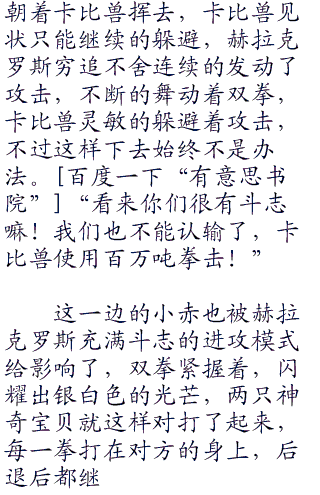 朝着卡比兽挥去，卡比兽见
状只能继续的躲避，赫拉克
罗斯穷追不舍连续的发动了
攻击，不断的舞动着双拳，
卡比兽灵敏的躲避着攻击，
不过这样下去始终不是办
法。[百度一下“有意思书
院”]“看来你们很有斗志
嘛！我们也不能认输了，卡
比兽使用百万吨拳击！”
这一边的小赤也被赫拉
克罗斯充满斗志的进攻模式
给影响了，双拳紧握着，闪
耀出银白色的光芒，两只神
奇宝贝就这样对打了起来，
每一拳打在对方的身上，后
退后都继